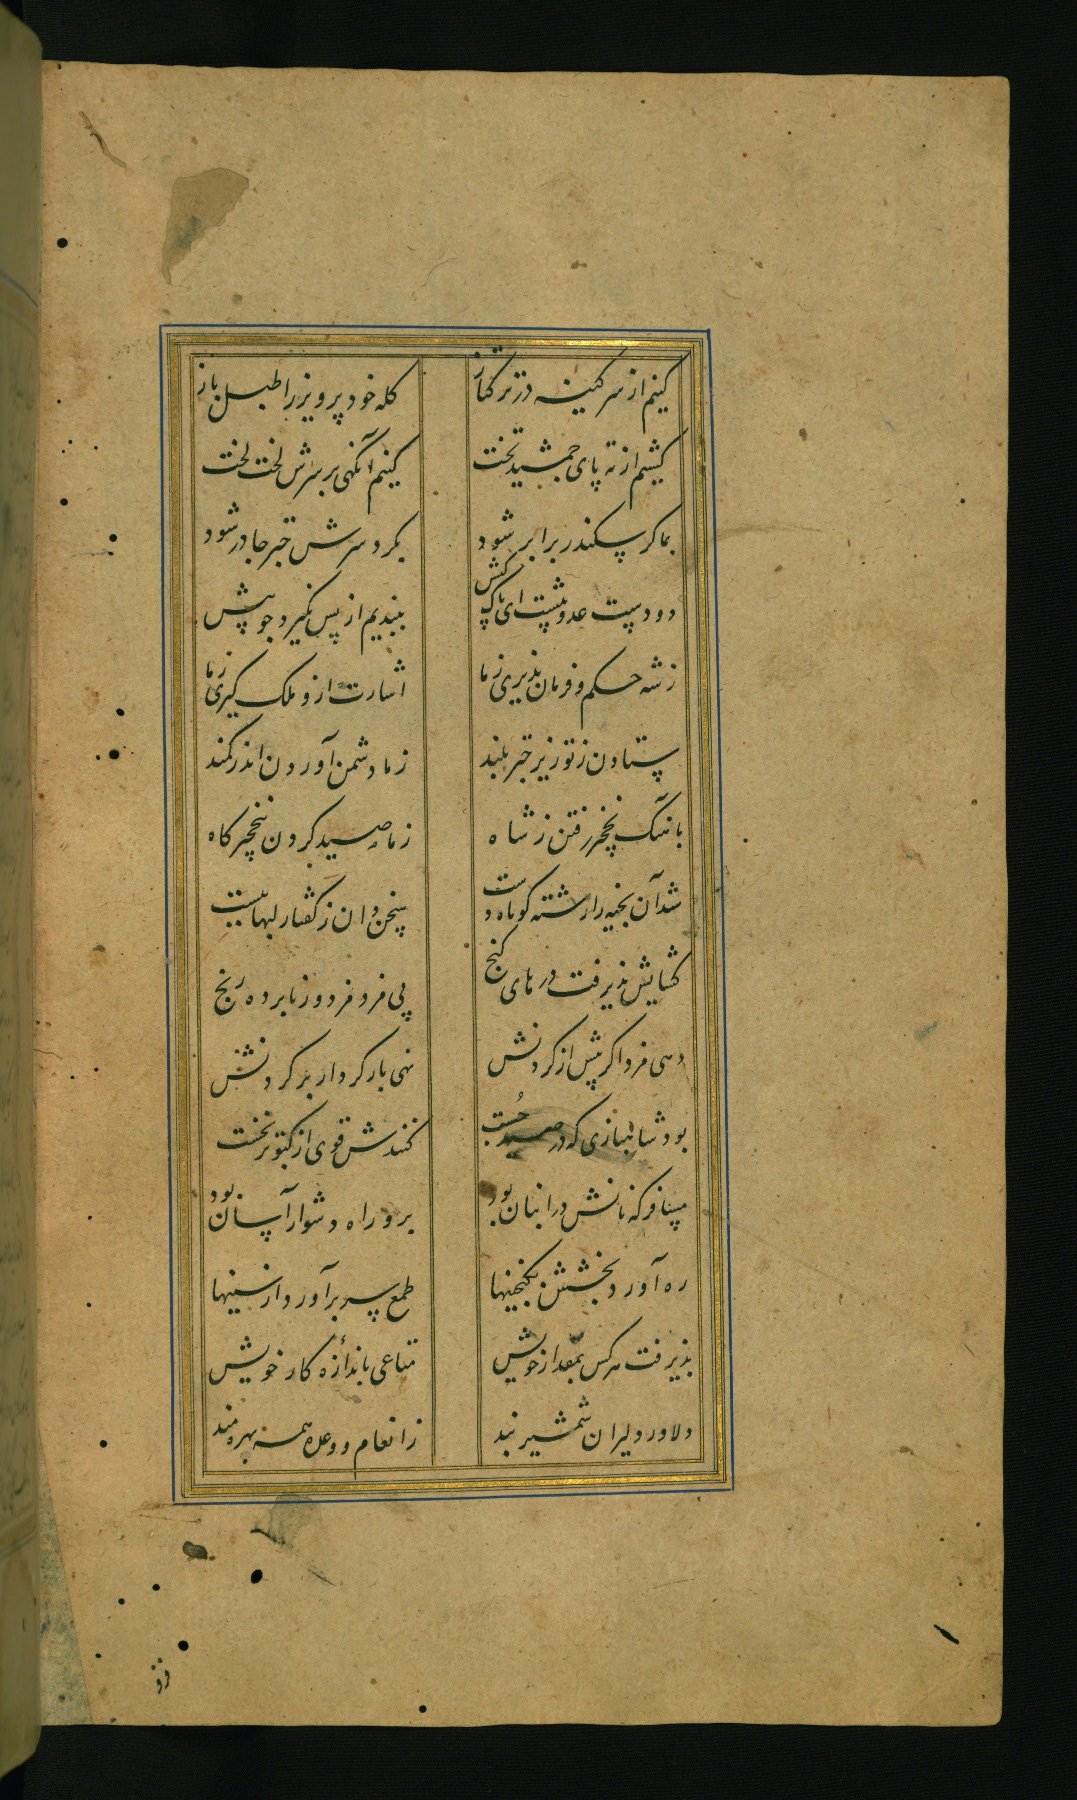 کنیم از سر کینه در ترکتاز کله خود پرویز را طبل باز
کشیم از ته پای جمشید تخت کنیم آنگهی بر سرش لخت لخت
بما گر سکندر برابر شود بگرد سرش چتر چادر شود
دو دست عدو پشت ای پاک کش ببندیم از پس نگیرد چو پیش
ز شه حکم و فرمان پذیری ز ما اشارت ازو ملک گیری ز ما
ستادن ز تو زیر چتر بلند ز ما دشمن آوردن اندر کمند
بآهنگ نخچیر رفتن ز شاه ز ما صید کردن بنخچیرگاه
شد آن بخیه را رشته کوتاه دست سخن وان ز گفتار لبها ببست
گشایش پذیرفت درهای گنج پی مزد مزدور نابرده رنج
دهی مزد اگر پیش از کردنش نهی بار کردار بر گردنش
بود شاهبازی که در صید جست کنندش قوی از کبوتر نخست
مسافر که نانش در انبان بود برو راه دشوار آسان بود
ره آورد بخشش بگنجینها طمع سر برآورد از سینها
پذیرفت هر کس بمقدار خویش متاعی باندازه کار خویش
دلاور دلیران شمشیر بند ز انعام و وعده همه بهره مند